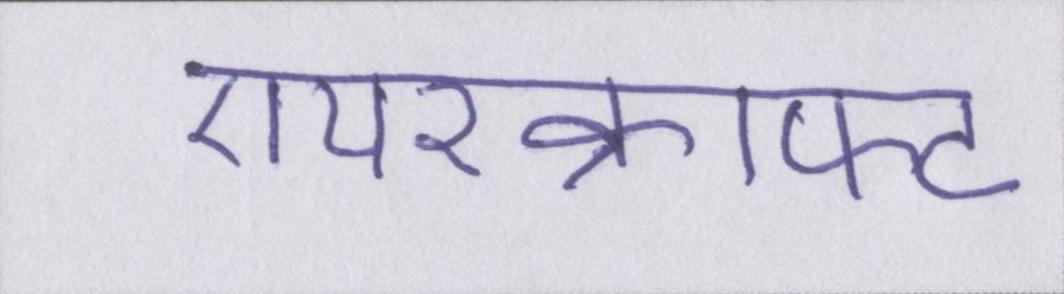 एयरक्राफ्ट